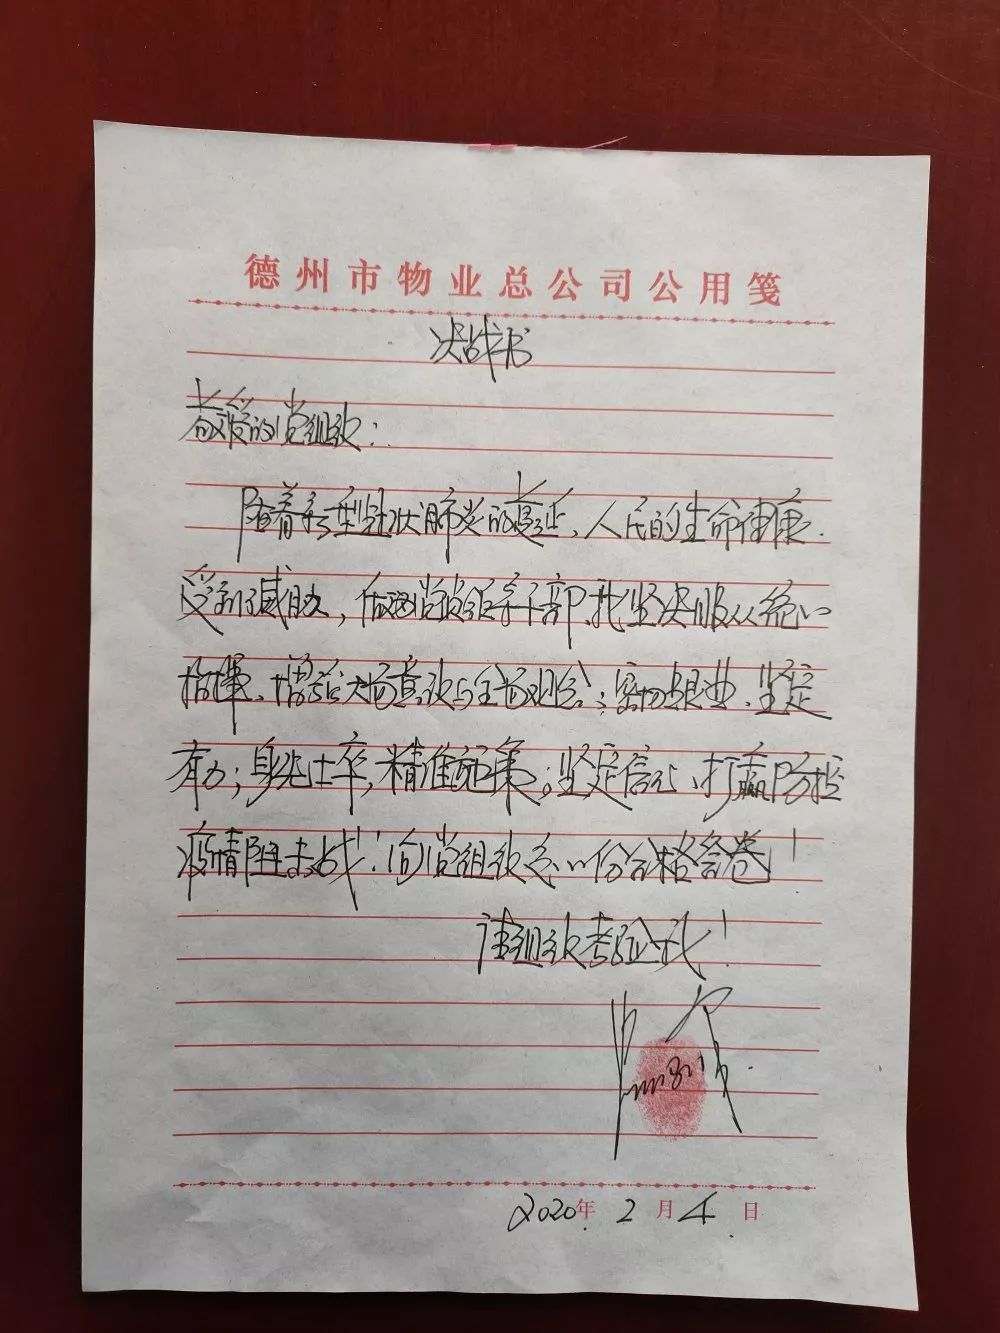 德州市物业总公司公用笺
决战书
敬爱的党组织:
随着新型冠状肺炎的蔓延、人民的生命健康
受到了威胁,做为党员领导干部、我坚决服从统一
指挥、增强大局意识与全局观念;宗旨、坚定
有力;身先士卒,精准施策;坚定信心、打赢防控
疫情阻击战!向党组织交一份合格答卷!
请组织考验我!
2020年 2 月 4 日